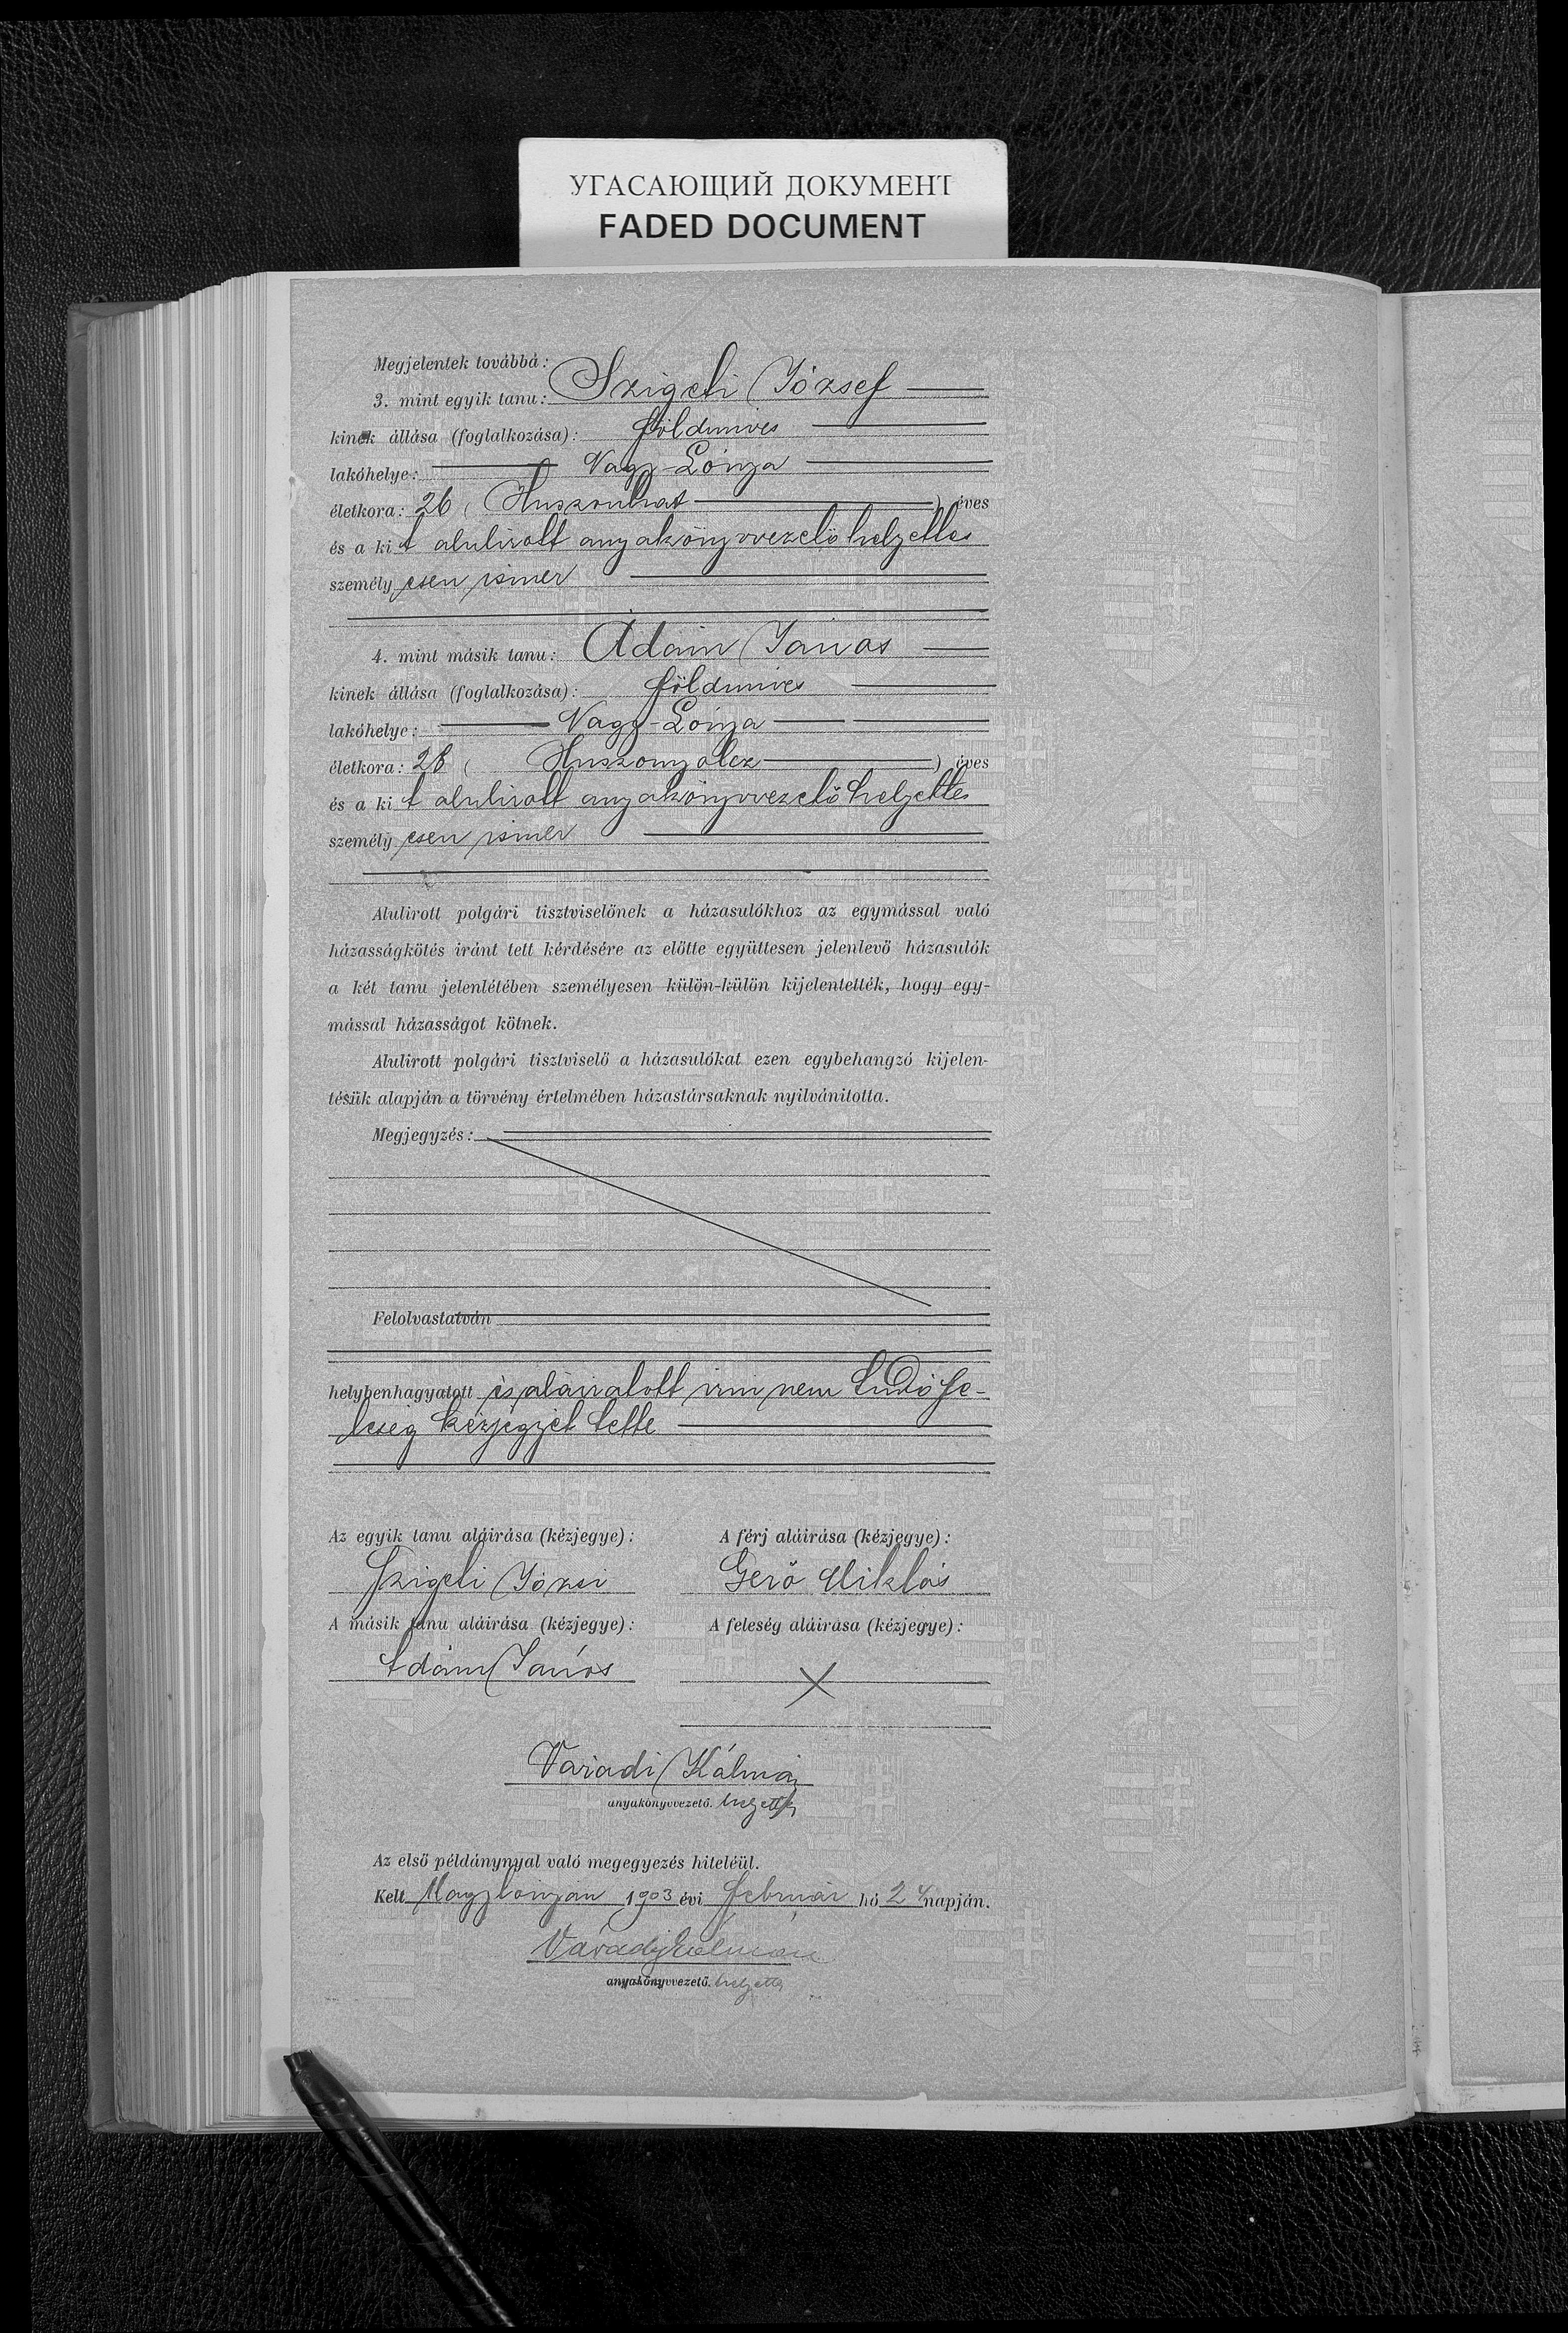 УГАСАЮЩИЙ ДОКУМЕНТ
FADED DOCUMENT
Megjelentek továbbá:
3. mint egyik tanu: Szigeti József
kinek állása (foglalkozása): földmives
lakóhelye: Nagy-Lónya
életkora: 26 (Huszonhat) éves
és a kit alulirott anyakönyvvezetőhelyettes
személyesen ismer
4. mint másik tanu: Ádám János
kinek állása (foglalkozása): földmives
lakóhelye: Nagy-Lónya
életkora: 28 (Huszonyolcz) éves
és a kit alulirott anyakönyvvezetőhelyettes
személyesen ismer
Alulirott polgári tisztviselőnek a házasulókhoz az egymással való
házasságkötés iránt tett kérdésére az előtte együttesen jelenlevő házasulók
a két tanu jelenlétében személyesen külön-külön kijelentették, hogy egy-
mással házasságot kötnek.
Alulirott polgári tisztviselő a házasulókat ezen egybehangzó kijelen-
tésük alapján a törvény értelmében házastársaknak nyilvánitotta.
Megjegyzés:
Felolvastatván
helybenhagyatott és aláiratott irni nem tudó fe-
leség kézjegyét tette
Az egyik tanu aláirása (kézjegye): A férj aláirása (kézjegye):
Szigeti Józsi Gerő Miklós
A másik tanu aláirása (kézjegye): A feleség aláirása (kézjegye):
Ádám János X
Váradi Kálmán
anyakönyvvezető. helyettes
Az első példánynyal való megegyezés hiteléül.
Kelt Nagylónyán 1903 évi február hó 24 napján.
Várady Kálmán
anyakönyvvezető. helyettes